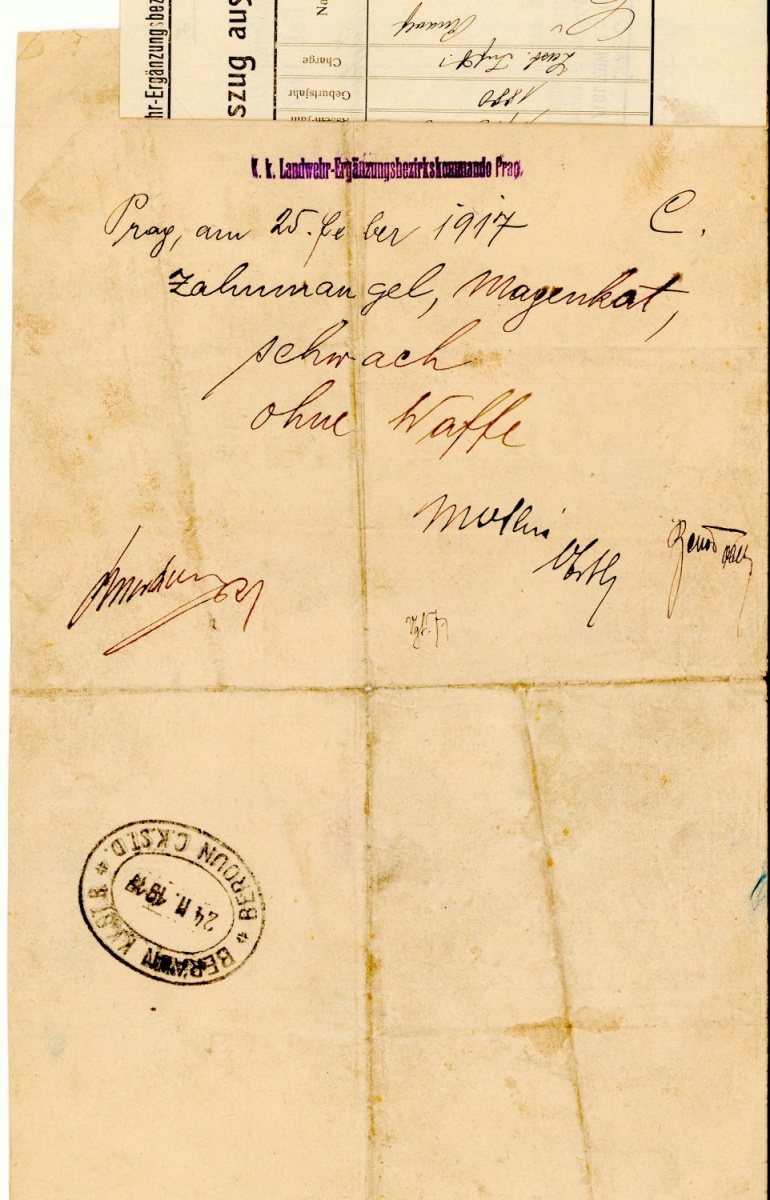 hr-Ergänzungsbez
szug aus
Na
Charge
Geburtsjahr
1880
K. k. Landwehr-Ergänzungsbezirkskommando Prag.
Prag, am 25. feber 1917 C.
Zahnmangel, Magenkat,
schwach
ohne Waffe
BERAUN K.K.ST.B. * BEROUN C.K.ST.D. *
24 II. 1917